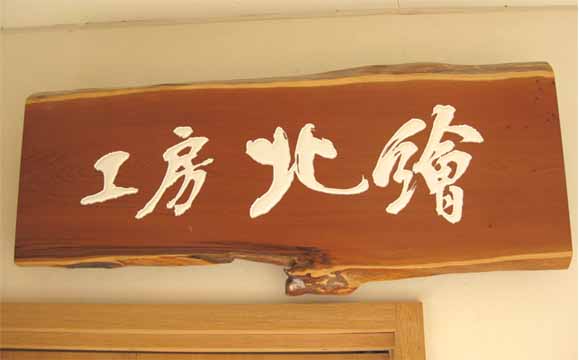 工房北繪